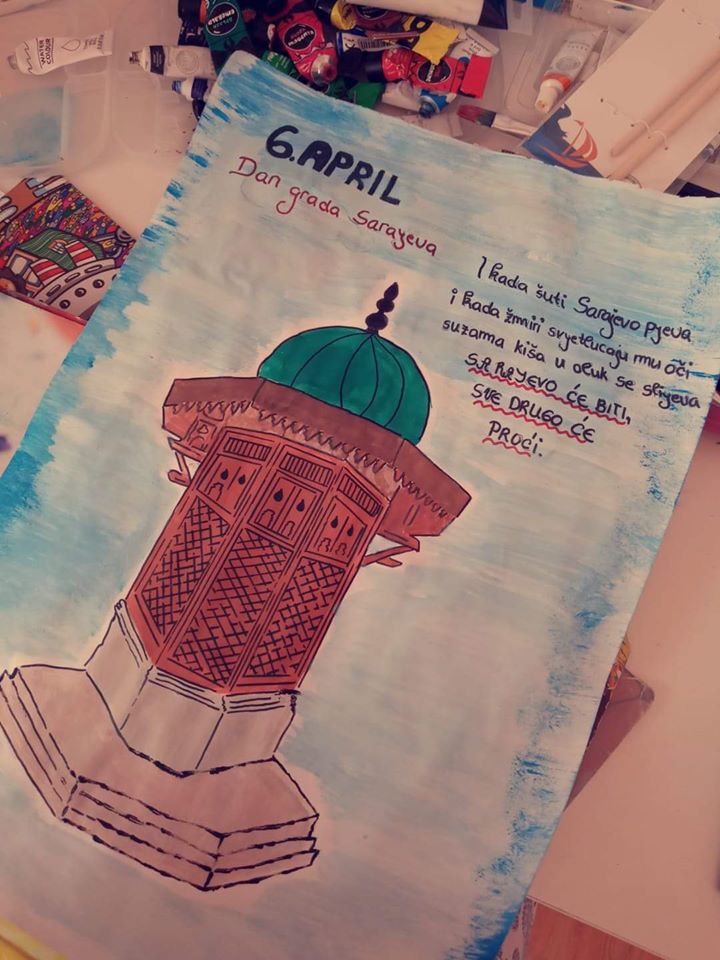 WATER
COLOUR
EMERALD
6.APRIL
Dan grada Sarajeva
I kada šuti Sarajevo pjeva
i kada žmiri svjetlucaju mu oči
suzama kiša u oluk se slijeva
SARAJEVO ĆE BITI,
SVE DRUGO ĆE
PROĆI.